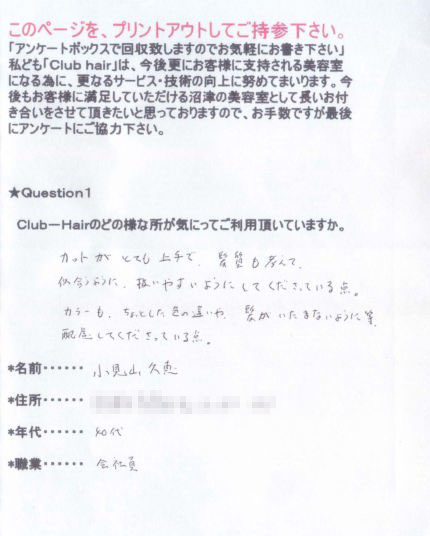 このページを、プリントアウトしてご持参下さい。
「アンケートボックスで回収致しますのでお気軽にお書き下さい」
私ども「Club hair」は、今後更にお客様に支持される美容室
になる為に、更なるサービス・技術の向上に努めてまいります。今
後もお客様に満足していただける沼津の美容室として長いお付
き合いをさせて頂きたいと思っておりますので、お手数ですが最後
にアンケートにご協力下さい。
★Question1
Club－Hairのどの様な所が気にってご利用頂いていますか。
カットが とても 上手で、髪質も考えて、
似合うように、扱いやすいようにしてくださっている点。
カラーも、ちょっとした色の違いや、髪がいたまないように等、
配慮してくださっている点。
*名前・・・・・・ 小見山 久恵
*住所・・・・・・
*年代・・・・・・ 40代
*職業・・・・・・ 会社員